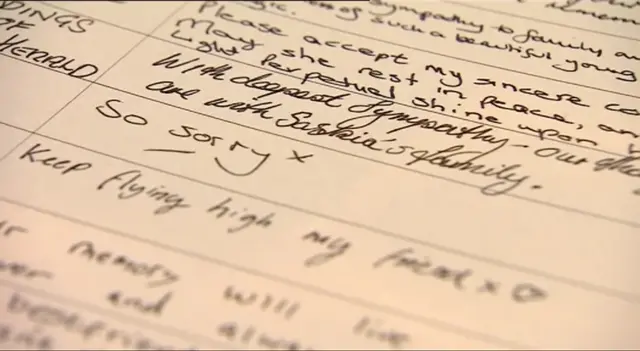 sympathy to family an
of such a beautiful young
DINGS
Please accept my sincere co
May she rest in peace, an
HERALD
Light Perpetual shine upon
With deepest Sympathy - Our tho
are with Saskia's family.
So sorry x
Keep flying high my friend x ♡
memory will live
and alwa